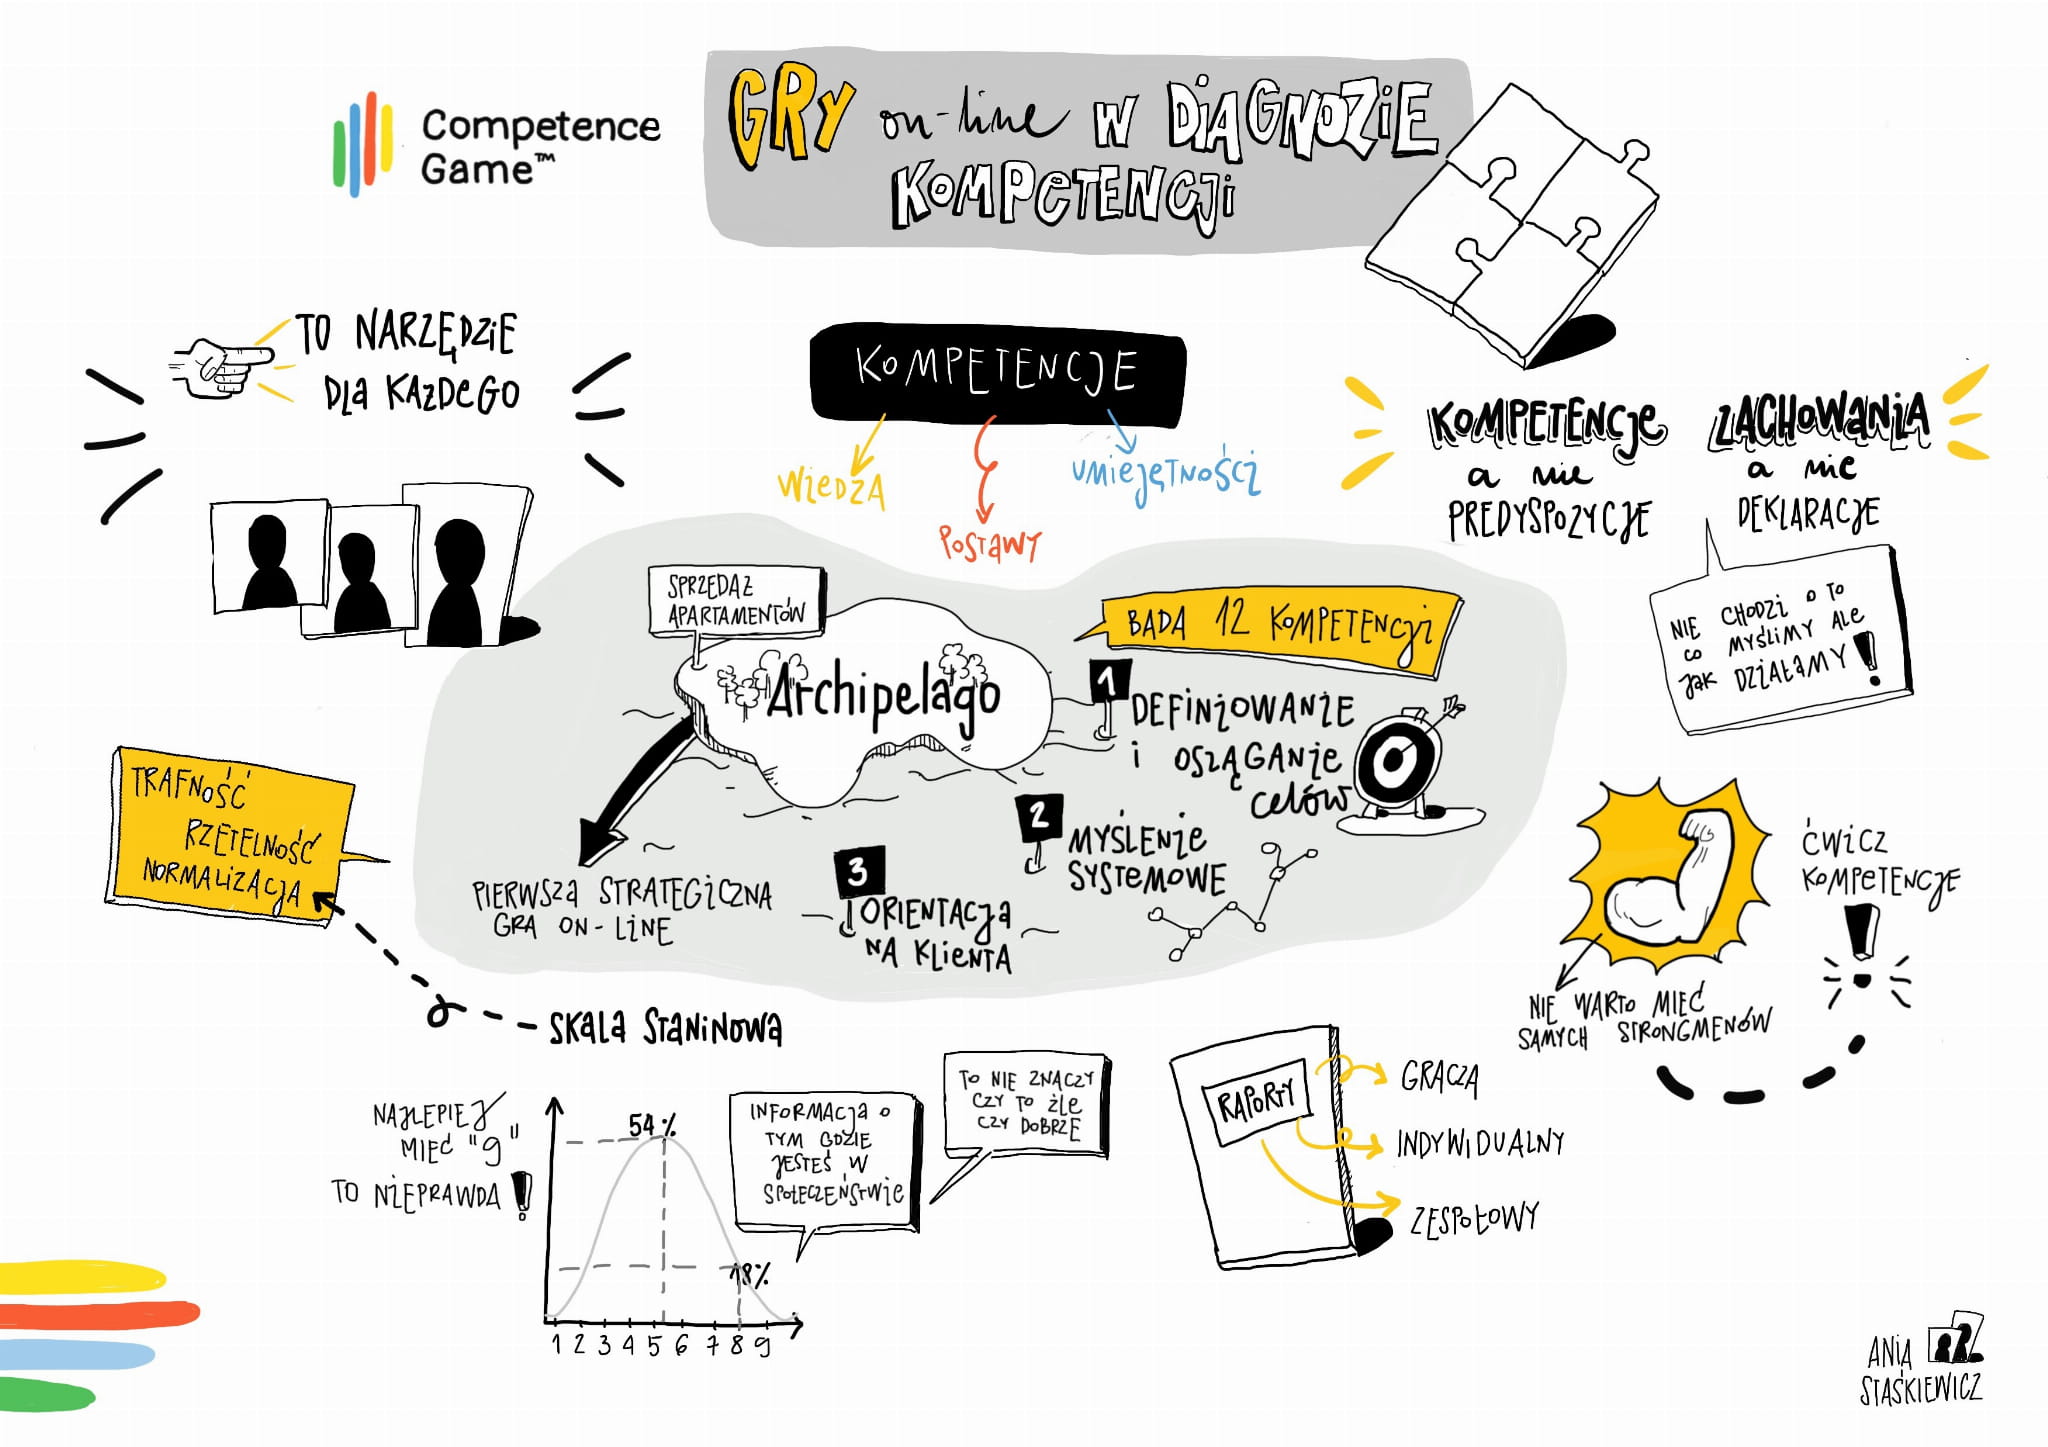 Competence
Game™
GRY on-line W DIAGNOZIE
KOMPETENCJI
TO NARZĘDZIE
DLA KAŻDEGO
KOMPETENCJE
WIEDZA
POSTAWY
UMIEJĘTNOŚCI
KOMPETENCJE
a nie
PREDYSPOZYCJE
ZACHOWANIA
a nie
DEKLARACJE
NIE CHODZI O TO
CO MYŚLIMY ALE
JAK DZIAŁAMY!
SPRZEDAŻ
APARTAMENTÓW
Archipelago
BADA 12 KOMPETENCJI
1
DEFINIOWANIE
i OSIĄGANIE
CELÓW
2
MYŚLENIE
SYSTEMOWE
3
ORIENTACJA
NA KLIENTA
PIERWSZA STRATEGICZNA
GRA ON-LINE
TRAFNOŚĆ
RZETELNOŚĆ
NORMALIZACJA
SKALA STANINOWA
NAJLEPIEJ
MIEĆ "9"
TO NIEPRAWDA!
54%
18%
1 2 3 4 5 6 7 8 9
INFORMACJA O
TYM GDZIE
JESTEŚ W
SPOŁECZEŃSTWIE
TO NIE ZNACZY
CZY TO ŹLE
CZY DOBRZE
RAPORTY
GRACZA
INDYWIDUALNY
ZESPOŁOWY
ĆWICZ
KOMPETENCJE
!
NIE WARTO MIEĆ
SAMYCH STRONGMENÓW
ANIA
STAŚKIEWICZ